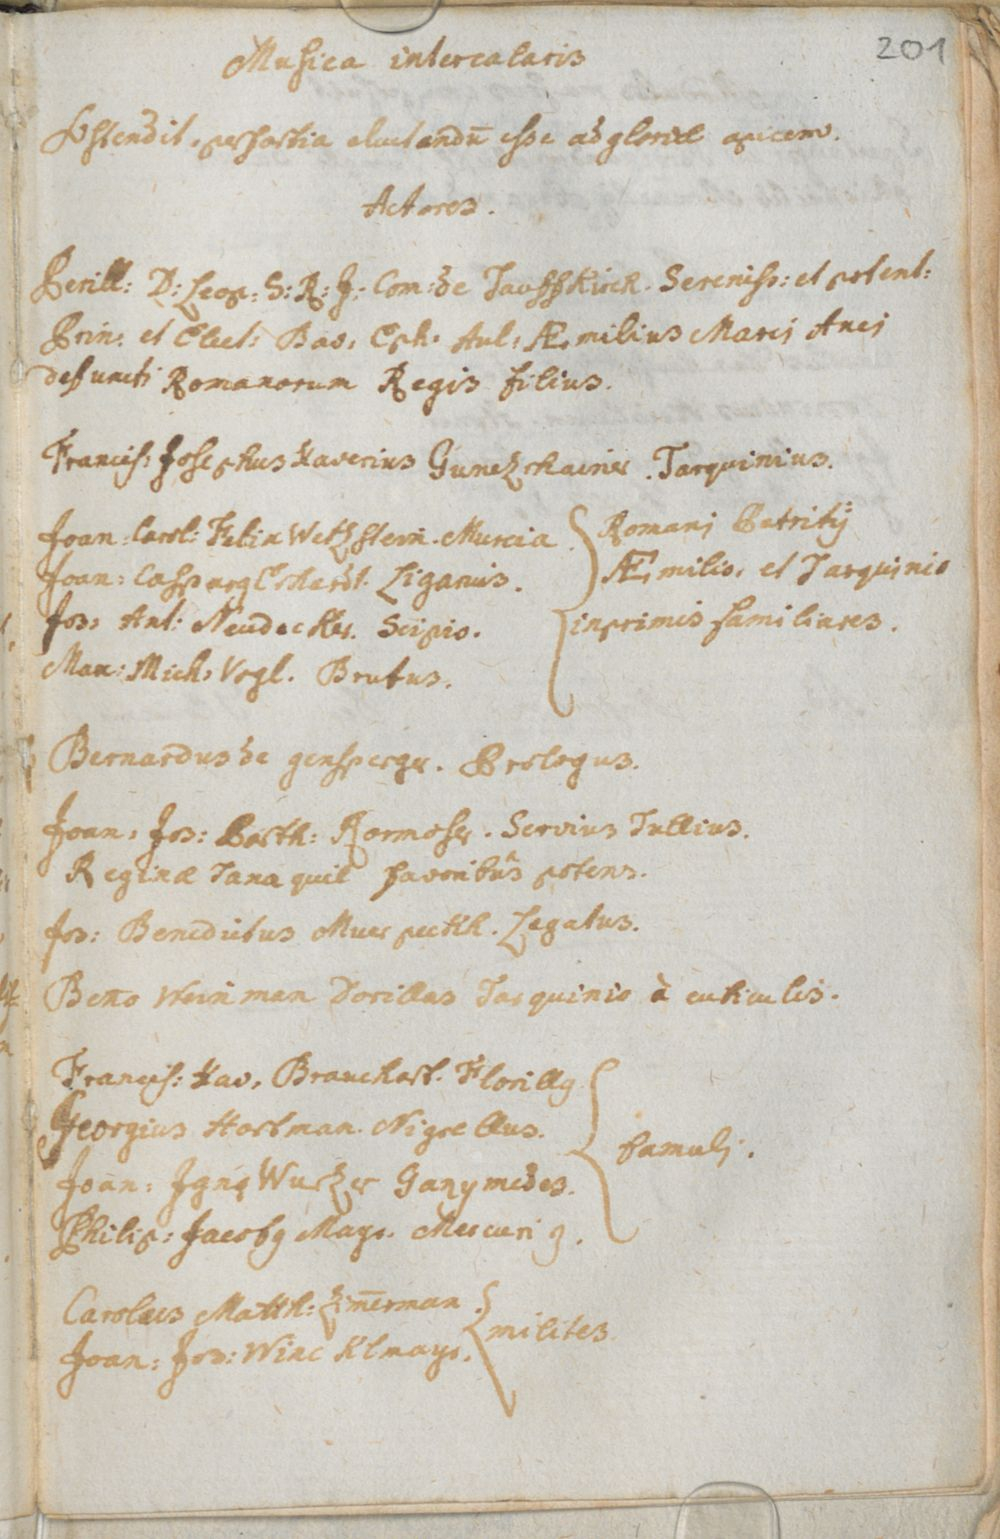 201
Musica intercalaris
Ostendit, per fortia eluctandū esse ad gloriæ apicem.
Actores.
Perill: D: Leop: S: R: I: Com: de Tauffkirch. Sereniss: et potent:
Prin: et Elect: Bav: Eph: Aul: Æmilius Marcj Ancj
defuncti Romanorum Regis filius.
Francisc: Josephus Xaverius Gunezrhainer. Tarquinius.
Joan: Carol: Felix Wetzstein. Murcia.
Joan: Casparg Erhardt. Liganius.
Jos: Ant: Neudecker. Scipio.
Man: Mich: Vogl. Brutus.
Romanj Patritij
Æmilio, et Tarquinio
inprimis familiares.
Bernardus de genspergr. Prologus.
Joan: Jos: Barth: Rormoser. Servius Tullius.
Reginæ Tanaquil favoribus potens.
Jos: Benedictus Muerpeckh. Legatus.
Beno Weinman Dorillas Tarquinio à cubiculis.
Francisc: Xav: Brauchart. Florillg
Georgius Hartman. Nigrellus.
Joan: Ignq Wurzer Ganymedes.
Philip: Jacobg Mayr. Mercurig.
famulj.
Carolus Matth: Zimerman.
Joan: Jos: Wincklmayr.
milites.